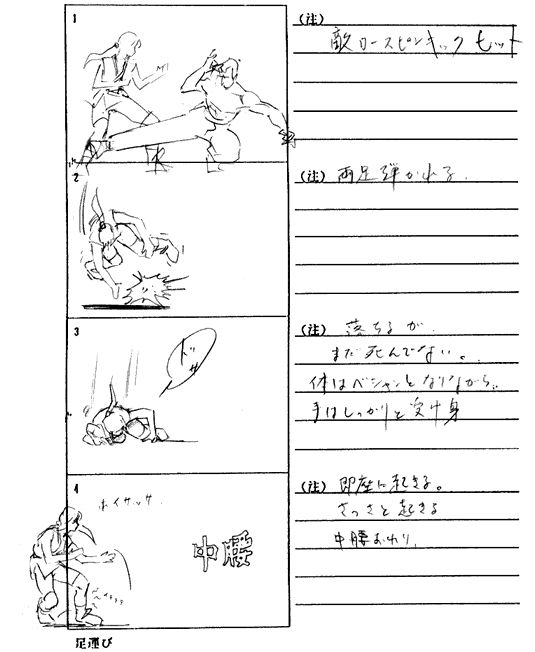 1
(注)
敵ロースピンキック ヒット
2
(注) 両足弾かれる.
3
ドサ
(注) 落ちるが.
まだ死んでない。
体はベシャンとなりながら..
手はしっかりと受け身
4
ホイサッサ.
中腰
(注) 即座に起きる。
さっさと起きる
中腰おわり.
足運び